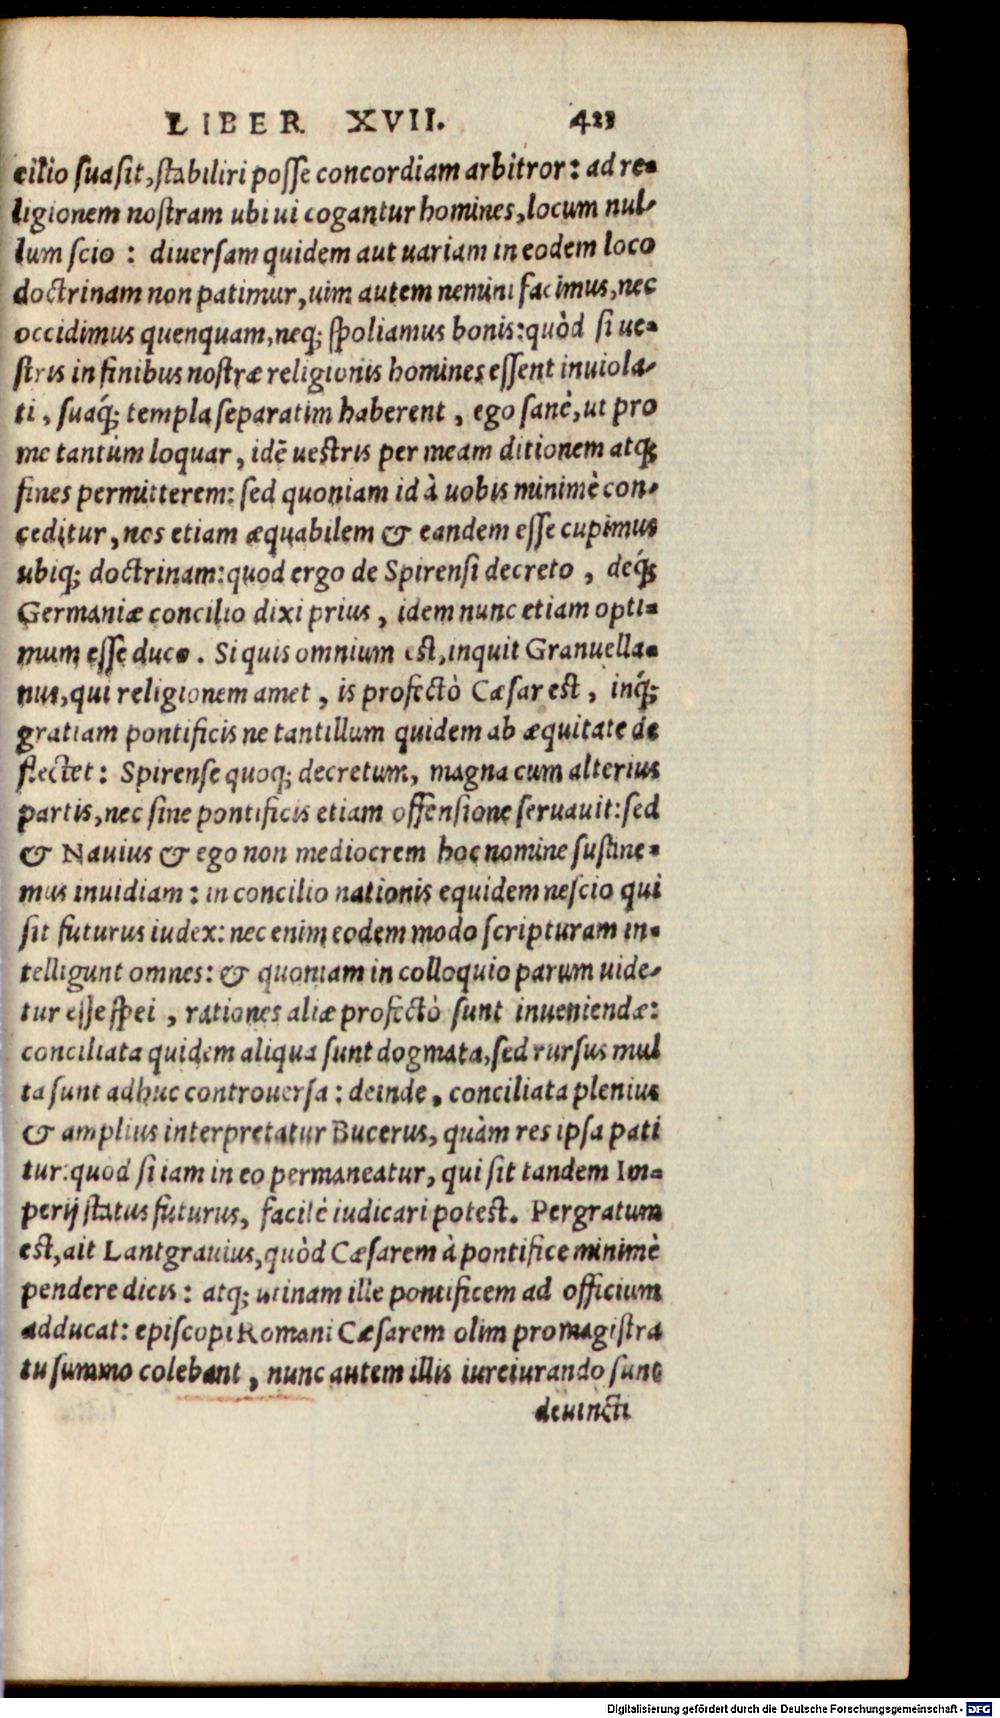 LIBER XVII. 423
cilio suasit, stabiliri posse concordiam arbitror: ad re-
ligionem nostram ubi ui cogantur homines, locum nul-
lum scio : diuersam quidem aut uariam in eodem loco
doctrinam non patimur, uim autem nemini facimus, nec
occidimus quenquam, neq; spoliamus bonis: quòd si ue-
stris in finibus nostræ religionis homines essent inuiola-
ti, suaq́; templa separatim haberent, ego sanè, ut pro
me tantùm loquar, idē uestris per meam ditionem atq;
fines permitterem: sed quoniam id à uobis minimè con-
ceditur, nos etiam æquabilem & eandem esse cupimus
ubiq; doctrinam: quod ergo de Spirensi decreto, deq́;
Germaniæ concilio dixi prius, idem nunc etiam opti-
mum esse duco. Si quis omnium est, inquit Granuella-
nus, qui religionem amet, is profectò Cæsar est, inq́;
gratiam pontificis ne tantillum quidem ab æquitate de
flectet: Spirense quoq; decretum, magna cum alterius
partis, nec sine pontificis etiam offensione seruauit: sed
& Nauius & ego non mediocrem hoc nomine sustine-
mus inuidiam: in concilio nationis equidem nescio qui
sit futurus iudex: nec enim eodem modo scripturam in-
telligunt omnes: & quoniam in colloquio parum uide-
tur esse spei, rationes aliæ profectò sunt inueniendæ:
conciliata quidem aliqua sunt dogmata, sed rursus mul
ta sunt adhuc controuersa: deinde, conciliata plenius
& amplius interpretatur Bucerus, quàm res ipsa pati
tur: quod si iam in eo permaneatur, qui sit tandem Im-
perij status futurus, facilè iudicari potest. Pergratum
est, ait Lantgrauius, quòd Cæsarem à pontifice minimè
pendere dicis: atq; utinam ille pontificem ad officium
adducat: episcopi Romani Cæsarem olim pro magistra
tu summo colebant, nunc autem illis iureiurando sunt
deuincti
Digitalisierung gefördert durch die Deutsche Forschungsgemeinschaft - DFG